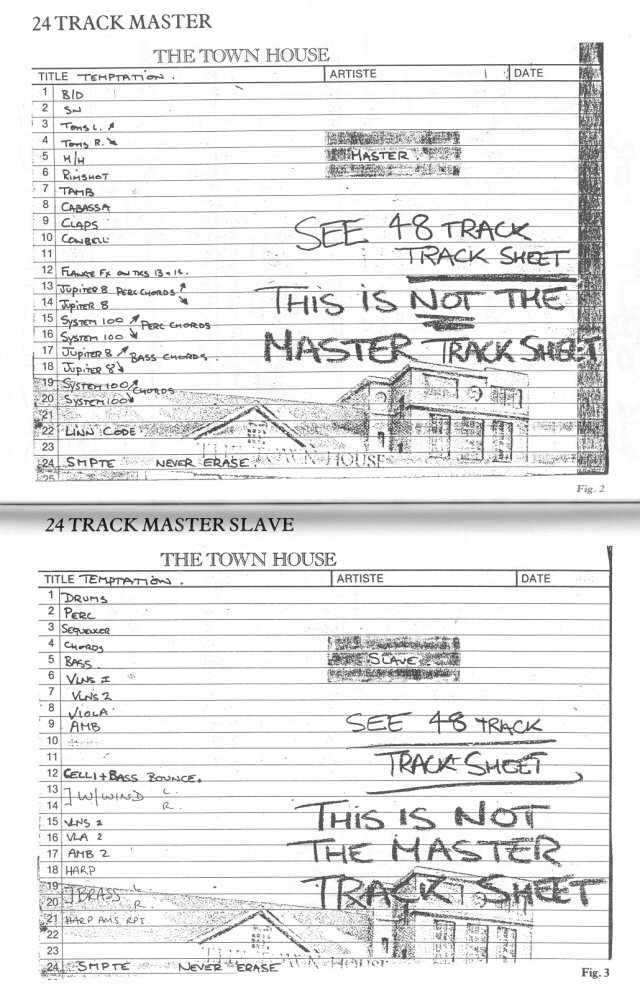 24 TRACK MASTER
THE TOWN HOUSE
TITLE TEMPTATION. ARTISTE DATE
1 B/D
2 SN
3 TOMS L.
4 TOMS R.
5 H/H
6 RIMSHOT
MASTER
7 TAMB
8 CABASSA
9 CLAPS
10 COWBELL
11
SEE 48 TRACK
TRACK SHEET
12 FLANGE FX ON TKS 13 + 14.
13 JUPITER 8 PERC CHORDS
14 JUPITER 8
THIS IS NOT THE
15 SYSTEM 100 PERC CHORDS
16 SYSTEM 100
17 JUPITER 8 BASS CHORDS.
18 JUPITER 8
MASTER TRACK SHEET
19 SYSTEM 100 CHORDS
20 SYSTEM 100
21
22 LINN CODE
23
THE TOWN HOUSE
24 SMPTE NEVER ERASE.
25
Fig. 2
24 TRACK MASTER SLAVE
THE TOWN HOUSE
TITLE TEMPTATION. ARTISTE DATE
1 DRUMS
2 PERC
3 SEQUENCER
4 CHORDS
5 BASS.
6 VLNS I
SLAVE
7 VLNS 2
8 VIOLA
9 AMB
10
11
SEE 48 TRACK
TRACK SHEET
12 CELLI + BASS BOUNCE.
13 ] W/WIND L.
14 R.
15 VLNS 2
16 VLA 2
17 AMB 2
18 HARP
THIS IS NOT
THE MASTER
TRACK SHEET
19 ] BRASS L
20 R.
21 HARP AMS RPT
22
23
24 SMPTE NEVER ERASE
Fig. 3